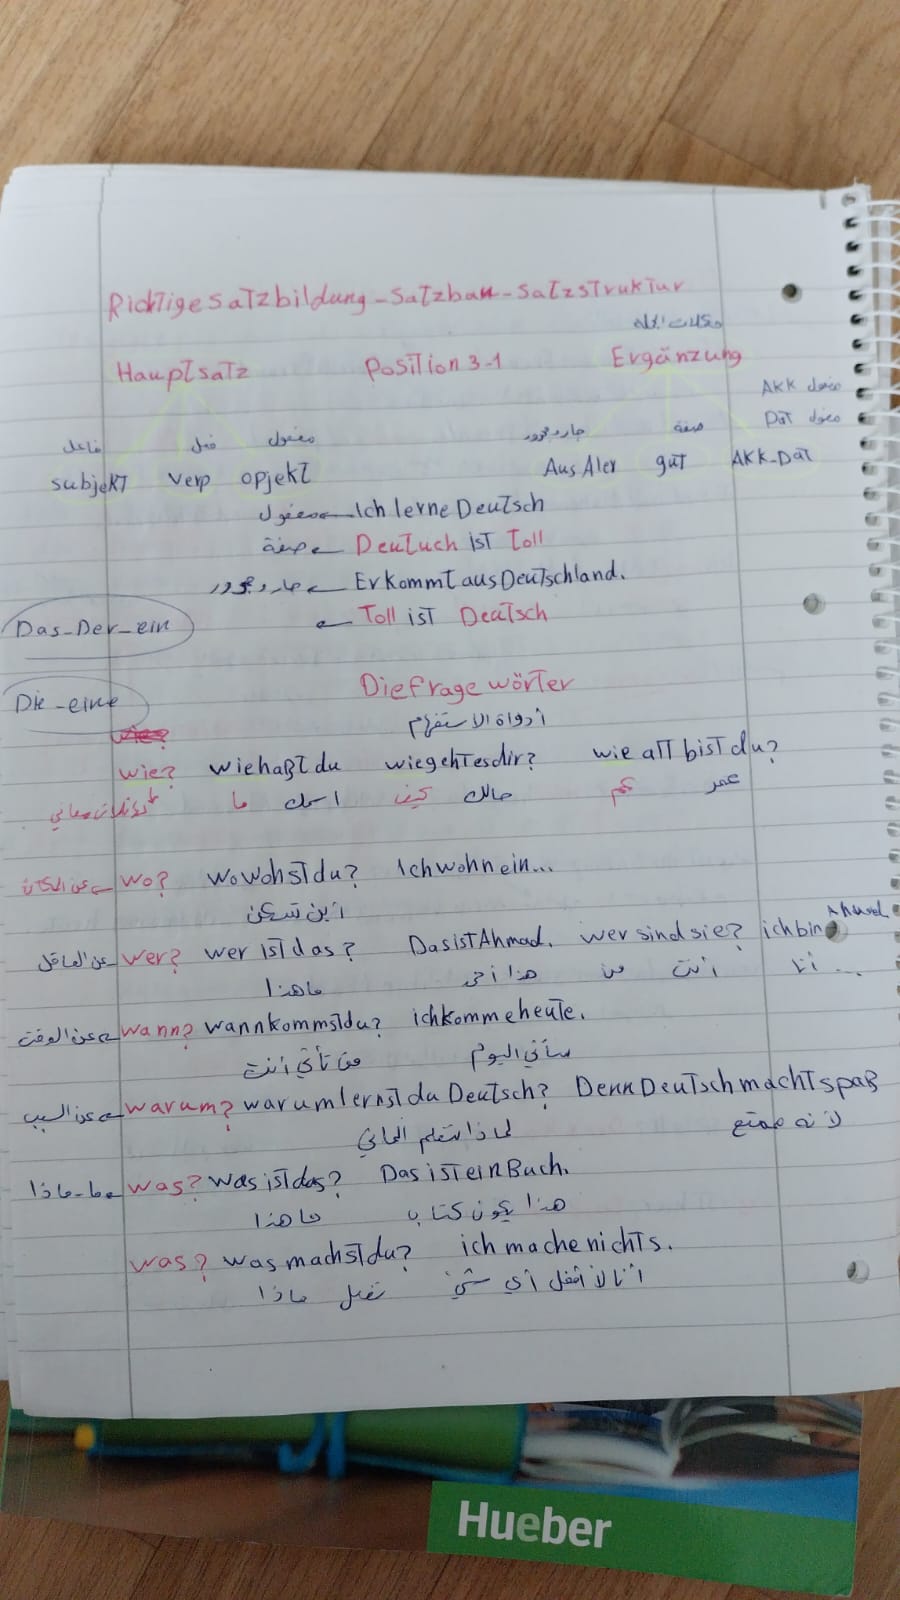 Richtige Satzbildung - Satzbau - Satzstruktur
مكملات الجملة
Hauptsatz Position 3-1 Ergänzung
AKK مفعول
Dat مفعول
فاعل فعل مفعول جار ومجرور صفة
subjekt verp opjekt Aus Aler gut AKK-Dat
مفعول ← Ich lerne Deutsch
صفة ← Deutuch ist Toll
جار ومجرور ← Er kommt aus Deutschland.
Das-Der-ein ← Toll ist Deutsch
Die Frage wörter
Die-eine
أدواة الاستفهام
wie?
wie? wie haßt du wie geht es dir? wie alt bist du?
معاني ما اسمك كيف حالك كم عمر
عن المكان ← wo? wo wohst du? Ich wohn ein...
أين تسكن
Ahmed
عن العاقل ← wer? wer ist das? Das ist Ahmad. wer sind sie? ich bin
ماهذا هذا أحمد من أنت أنا ...
عن الوقت ← wann? wann kommst du? ich komme heute.
متى تأتي أنت سأتي اليوم
عن السبب ← warum? warum lernst du Deutsch? Denn Deutsch macht spaß
لماذا تتعلم الماني لأنه ممتع
ما - ماذا ← was? was ist das? Das ist ein Buch.
ما هذا هذا يكون كتاب
was? was machst du? ich mache nichts.
ماذا تفعل أنا لا أفعل أي شيئ
Hueber